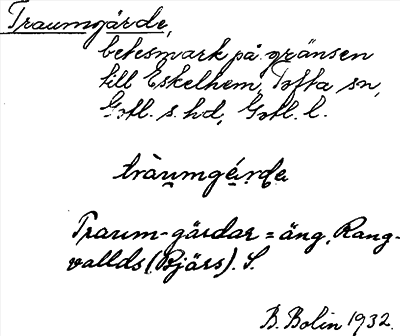 Traumgärde,
betesmark på gränsen
till Eskelhem, Tofta sn,
Gotl. s. hd, Gotl. l.
tràumgérde
Traum-gärdar = äng, Rang-
vallds (Bjärs). S.
B. Bolin 1932.